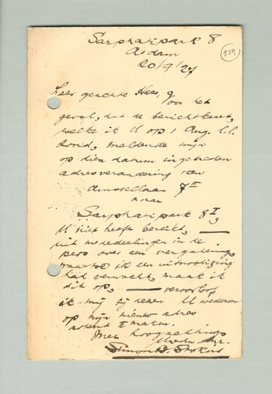 Sarphatipark 8
A'dam
20/9/27
219
Zeer geachte Heer,
Voor het
geval, dat de berichtkaart,
welke ik U op 1 Aug. l.l.
zond, meldende mijn
op dien datum ingetreden
adresverandering van
Amstellaan 7 II
naar
Sarphatipark 8 I,
U niet heeft bereikt, —
uit mededelingen in de
pers over een vergadering
waartoe ik een uitnoodiging
had verwacht, maak ik
dit op, — veroorloof
ik mij dezen U wederom
op mijn nieuw adres
attent te maken.
Met hoogachting